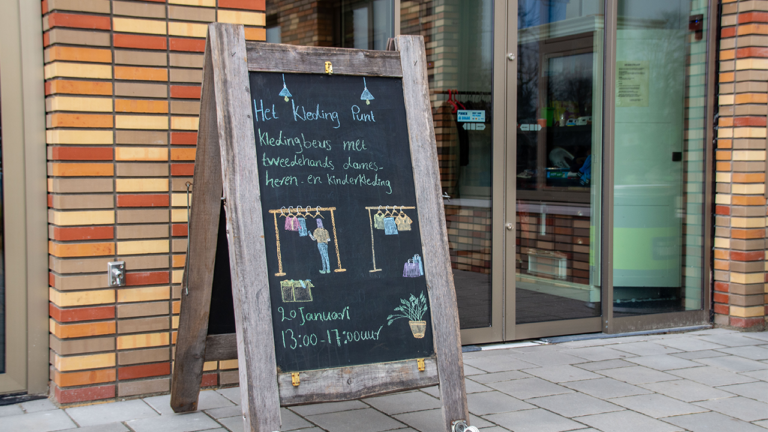 Het Kleding Punt
Kledingbeurs met
tweedehands dames-
heren- en kinderkleding
20 januari
13:00-17:00uur